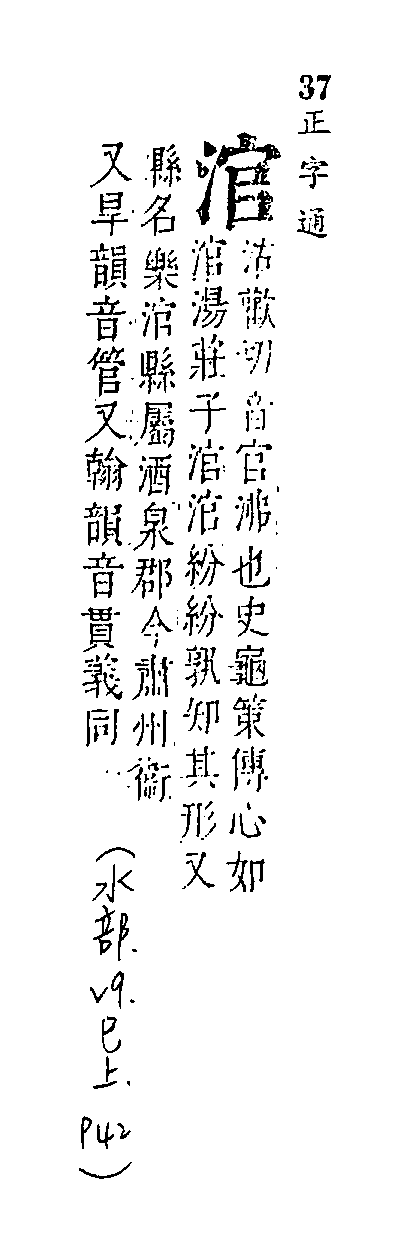 37
正字通
涫
沽歡切音官沸也史龜策傳心如
涫湯莊子涫涫紛紛孰知其形又
縣名樂涫縣屬酒泉郡今肅州衞
又旱韻音管又翰韻音貫義同
(水部.v9.巳上.P42)